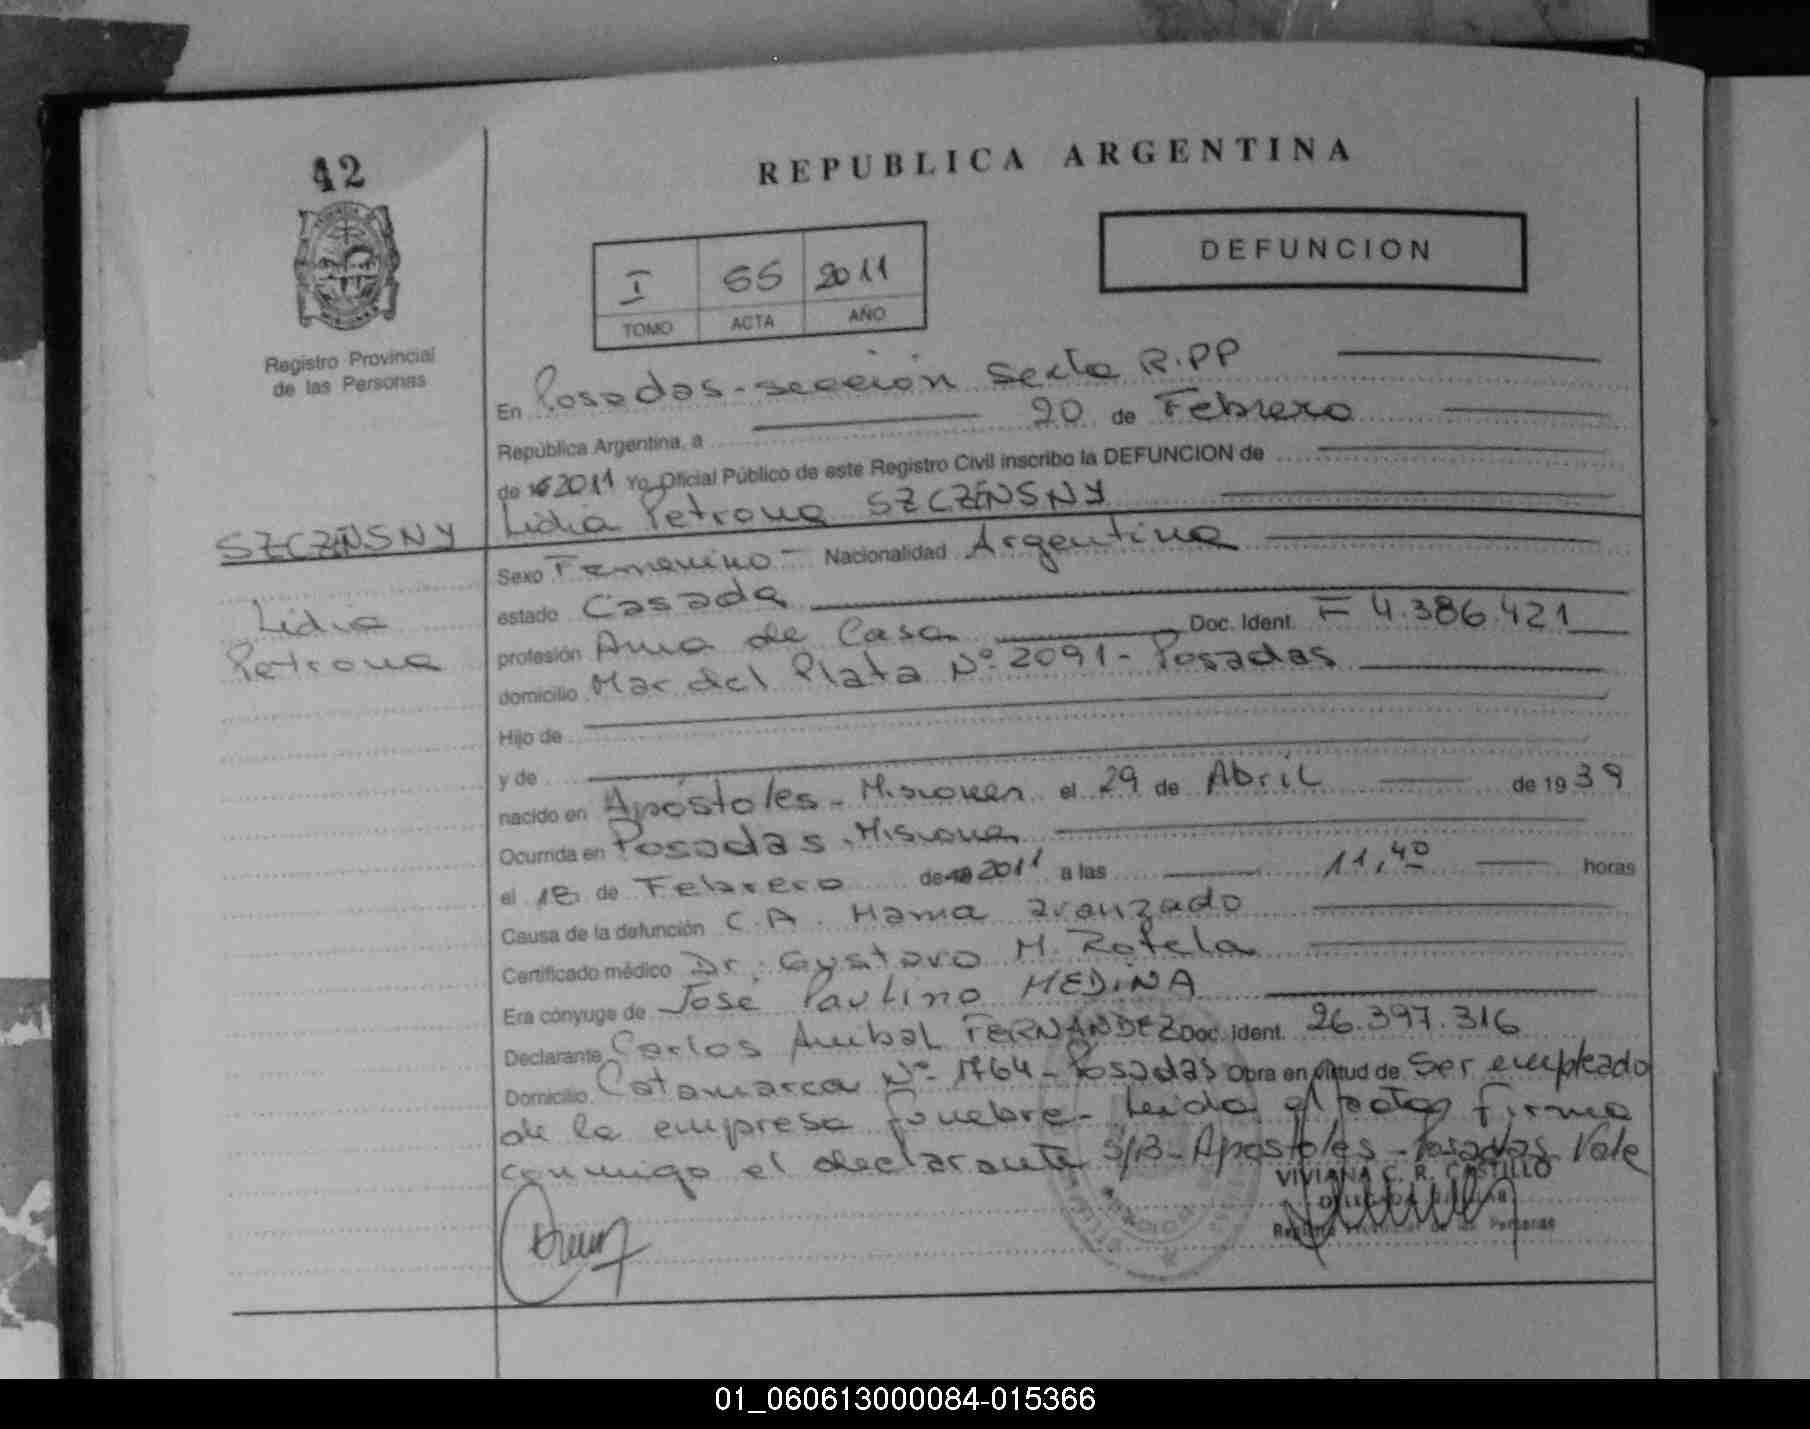 42
REPUBLICA ARGENTINA
DEFUNCION
I 55 2011
TOMO ACTA AÑO
Registro Provincial
de las Personas
En Posadas - sección Sexta R.PP
República Argentina, a 20 de Febrero
de 2011 Yo Oficial Público de este Registro Civil inscribo la DEFUNCION de
Lidia Petrona SZCZENSNY
SZCZENSNY
Lidia
Petrona
Sexo Femenino - Nacionalidad Argentina
estado Casada
profesión Ama de Casa Doc. Ident. F 4.386.421
domicilio Mar del Plata Nº 2091 - Posadas
Hijo de
y de
nacido en Apóstoles - Misiones el 29 de Abril de 1939
Ocurrida en Posadas, Misiones
el 18 de Febrero de 2011 a las 11,40 horas
Causa de la defunción C.A. Mama avanzado
Certificado médico Dr. Gustavo M. Rotela
Era cónyuge de José Paulino MEDINA
Declarante Carlos Anibal FERNANDEZ Doc. Ident. 26.397.316
Domicilio Catamarca Nº 1764 - Posadas Obra en virtud de Ser empleado
de la empresa fúnebre - Leida el acta firma
conmigo el declarante S/B - Apostoles - Posadas Vale
VIVIANA C. R. CASTILLO
01_060613000084-015366